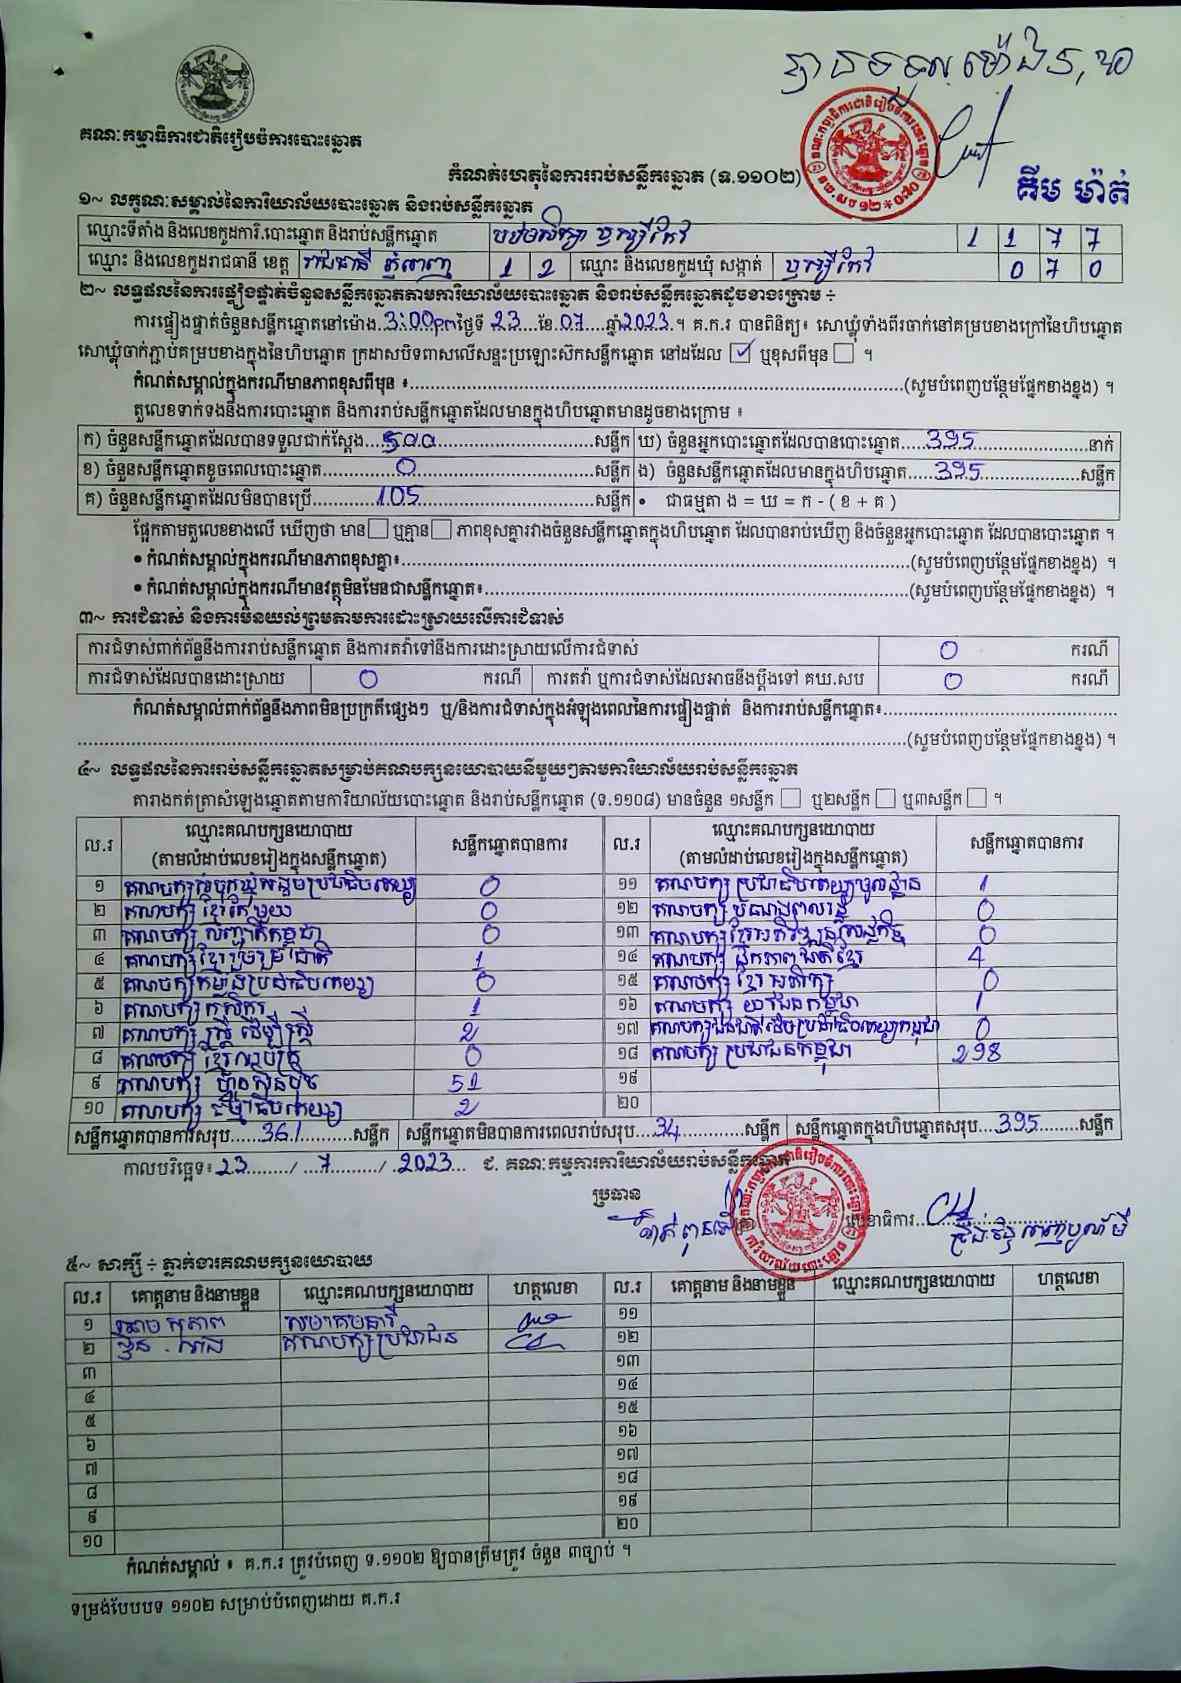 គណៈកម្មាធិការជាតិរៀបចំការបោះឆ្នោត
កំណត់ហេតុនៃការរាប់សន្លឹកឆ្នោត (ទ.១១០២)
គីម ម៉ាត់
១~ លក្ខណៈសម្គាល់នៃការិយាល័យបោះឆ្នោត និងរាប់សន្លឹកឆ្នោត
ឈ្មោះទីតាំង និងលេខកូដការិ.បោះឆ្នោត និងរាប់សន្លឹកឆ្នោត បឋមសិក្សា ឫស្សីកែវ 1 1 7 7
ឈ្មោះ និងលេខកូដរាជធានី ខេត្ត រាជធានី ភ្នំពេញ 1 2 ឈ្មោះ និងលេខកូដឃុំ សង្កាត់ ឫស្សីកែវ 0 7 0
២~ លទ្ធផលនៃការផ្ទៀងផ្ទាត់ចំនួនសន្លឹកឆ្នោតតាមការិយាល័យបោះឆ្នោត និងរាប់សន្លឹកឆ្នោតដូចខាងក្រោម ÷
ការផ្ទៀងផ្ទាត់ចំនួនសន្លឹកឆ្នោតនៅម៉ោង 3:00pm ថ្ងៃទី 23 ខែ 07 ឆ្នាំ 2023 ។ គ.ក.រ បានពិនិត្យ៖ សោឃ្លុំទាំងពីរចាក់នៅគម្របខាងក្រៅនៃហិបឆ្នោត
សោឃ្លុំចាក់ភ្ជាប់គម្របខាងក្នុងនៃហិបឆ្នោត ក្រដាសបិទពាសលើសន្ទះប្រឡោះស៊កសន្លឹកឆ្នោត នៅដដែល ☑ ឬខុសពីមុន ☐ ។
កំណត់សម្គាល់ក្នុងករណីមានភាពខុសពីមុន ៖ (សូមបំពេញបន្ថែមផ្នែកខាងខ្នង) ។
តួលេខទាក់ទងនឹងការបោះឆ្នោត និងការរាប់សន្លឹកឆ្នោតដែលមានក្នុងហិបឆ្នោតមានដូចខាងក្រោម ៖
ក) ចំនួនសន្លឹកឆ្នោតដែលបានទទួលជាក់ស្តែង 500 សន្លឹក ឃ) ចំនួនអ្នកបោះឆ្នោតដែលបានបោះឆ្នោត 395 នាក់
ខ) ចំនួនសន្លឹកឆ្នោតខូចពេលបោះឆ្នោត 0 សន្លឹក ង) ចំនួនសន្លឹកឆ្នោតដែលមានក្នុងហិបឆ្នោត 395 សន្លឹក
គ) ចំនួនសន្លឹកឆ្នោតដែលមិនបានប្រើ 105 សន្លឹក • ជាធម្មតា ង = ឃ = ក - ( ខ + គ )
ផ្អែកតាមតួលេខខាងលើ ឃើញថា មាន ☐ ឬគ្មាន ☐ ភាពខុសគ្នារវាងចំនួនសន្លឹកឆ្នោតក្នុងហិបឆ្នោត ដែលបានរាប់ឃើញ និងចំនួនអ្នកបោះឆ្នោត ដែលបានបោះឆ្នោត ។
• កំណត់សម្គាល់ក្នុងករណីមានភាពខុសគ្នា៖ (សូមបំពេញបន្ថែមផ្នែកខាងខ្នង) ។
• កំណត់សម្គាល់ក្នុងករណីមានវត្ថុមិនមែនជាសន្លឹកឆ្នោត៖ (សូមបំពេញបន្ថែមផ្នែកខាងខ្នង) ។
៣~ ការជំទាស់ និងការមិនយល់ព្រមតាមការដោះស្រាយលើការជំទាស់
ការជំទាស់ពាក់ព័ន្ធនឹងការរាប់សន្លឹកឆ្នោត និងការតវ៉ាទៅនឹងការដោះស្រាយលើការជំទាស់ 0 ករណី
ការជំទាស់ដែលបានដោះស្រាយ 0 ករណី ការតវ៉ា ឬការជំទាស់ដែលអាចនឹងប្តឹងទៅ គឃ.សប 0 ករណី
កំណត់សម្គាល់ពាក់ព័ន្ធនឹងភាពមិនប្រក្រតីផ្សេងៗ ឬ/និងការជំទាស់ក្នុងអំឡុងពេលនៃការផ្ទៀងផ្ទាត់ និងការរាប់សន្លឹកឆ្នោត៖
(សូមបំពេញបន្ថែមផ្នែកខាងខ្នង) ។
៤~ លទ្ធផលនៃការរាប់សន្លឹកឆ្នោតសម្រាប់គណបក្សនយោបាយនីមួយៗតាមការិយាល័យរាប់សន្លឹកឆ្នោត
តារាងកត់ត្រាសំឡេងឆ្នោតតាមការិយាល័យបោះឆ្នោត និងរាប់សន្លឹកឆ្នោត (ទ.១១០៨) មានចំនួន ១សន្លឹក ☐ ឬ២សន្លឹក ☐ ឬ៣សន្លឹក ☐ ។
ល.រ ឈ្មោះគណបក្សនយោបាយ (តាមលំដាប់លេខរៀងក្នុងសន្លឹកឆ្នោត) សន្លឹកឆ្នោតបានការ ល.រ ឈ្មោះគណបក្សនយោបាយ (តាមលំដាប់លេខរៀងក្នុងសន្លឹកឆ្នោត) សន្លឹកឆ្នោតបានការ
១ គណបក្សសំបុកឃ្មុំសង្គមប្រជាធិបតេយ្យ 0 ១១ គណបក្ស ប្រជាធិបតេយ្យមូលដ្ឋាន 1
២ គណបក្ស ខ្មែរតែមួយ 0 ១២ គណបក្ស 0
៣ គណបក្ស សញ្ជាតិកម្ពុជា 0 ១៣ គណបក្ស ខ្មែរអភិវឌ្ឍន៍សេដ្ឋកិច្ច 0
៤ គណបក្ស ខ្មែររួបរួមជាតិ 1 ១៤ គណបក្ស ឯកភាពជាតិខ្មែរ 4
៥ គណបក្សកម្លាំងប្រជាធិបតេយ្យ 0 ១៥ គណបក្ស ខ្មែរ អភិរក្ស 0
៦ គណបក្ស កសិករ 1 ១៦ គណបក្ស យុវជនកម្ពុជា 1
៧ គណបក្ស ស្ត្រី ដើម្បីស្ត្រី 2 ១៧ 0
៨ គណបក្ស ខ្មែរឈប់ក្រ 0 ១៨ គណបក្ស ប្រជាជនកម្ពុជា 298
៩ គណបក្ស ហ្វ៊ុនស៊ិនប៉ិច 51 ១៩
១០ គណបក្ស ធម្មាធិបតេយ្យ 2 ២០
សន្លឹកឆ្នោតបានការសរុប 361 សន្លឹក សន្លឹកឆ្នោតមិនបានការពេលរាប់សរុប 34 សន្លឹក សន្លឹកឆ្នោតក្នុងហិបឆ្នោតសរុប 395 សន្លឹក
កាលបរិច្ឆេទ៖ 23 / 7 / 2023 ជ. គណៈកម្មការការិយាល័យរាប់សន្លឹកឆ្នោត
ប្រធាន
លេខាធិការ
៥~ សាក្សី ÷ ភ្នាក់ងារគណបក្សនយោបាយ
ល.រ គោត្តនាម និងនាមខ្លួន ឈ្មោះគណបក្សនយោបាយ ហត្ថលេខា ល.រ គោត្តនាម និងនាមខ្លួន ឈ្មោះគណបក្សនយោបាយ ហត្ថលេខា
១ សមាគមនារី ១១
២ គណបក្សប្រជាជន ១២
៣ ១៣
៤ ១៤
៥ ១៥
៦ ១៦
៧ ១៧
៨ ១៨
៩ ១៩
១០ ២០
កំណត់សម្គាល់ ៖ គ.ក.រ ត្រូវបំពេញ ទ.១១០២ ឱ្យបានត្រឹមត្រូវ ចំនួន ៣ច្បាប់ ។
ទម្រង់បែបបទ ១១០២ សម្រាប់បំពេញដោយ គ.ក.រ